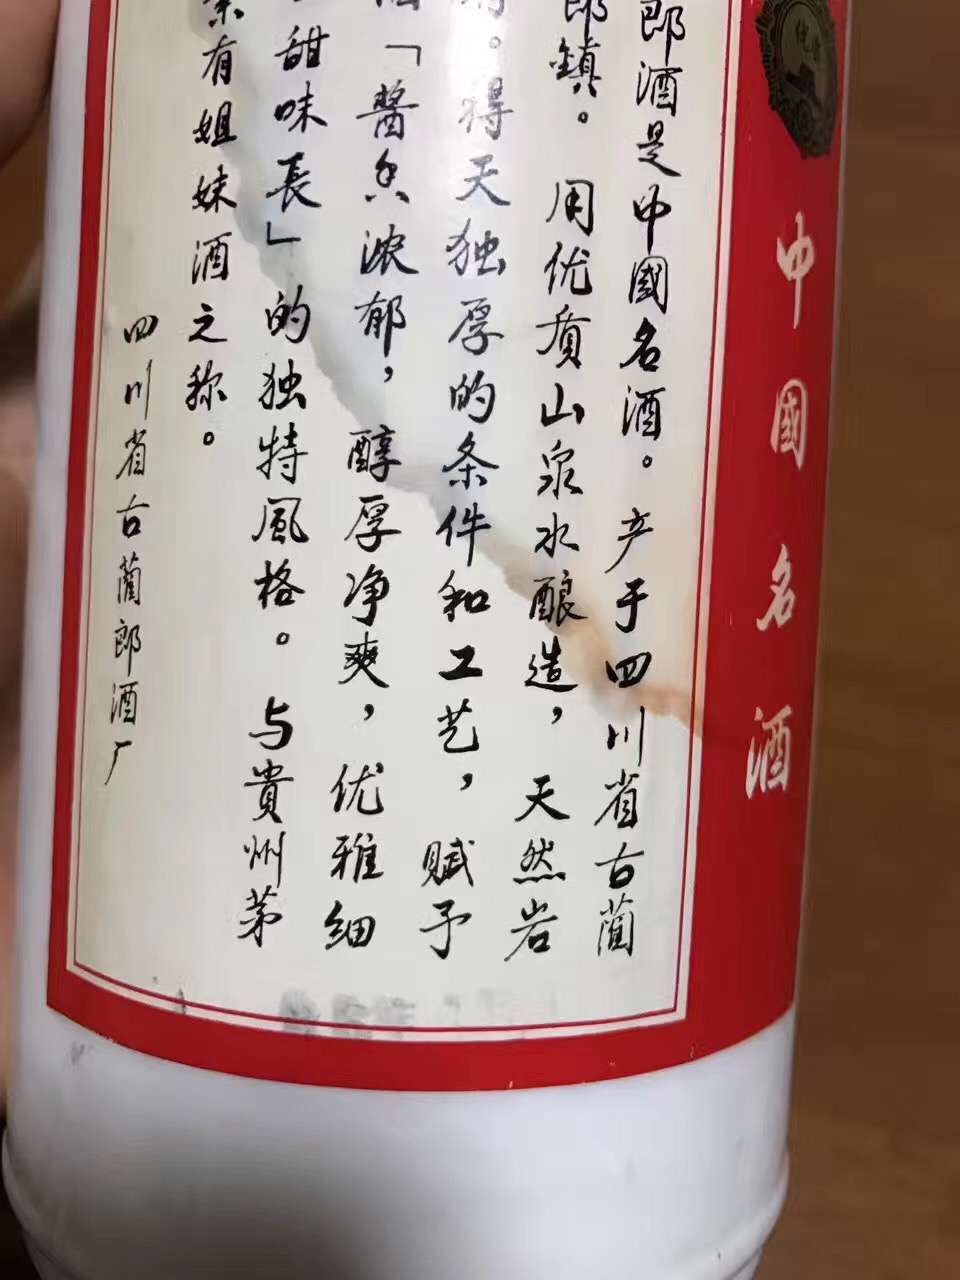 郎酒是中國名酒。产于四川省古蔺
郎鎮。用优质山泉水酿造，天然岩
。得天独厚的条件和工艺，赋予
「醬香浓郁，醇厚净爽，优雅细
甜味長」的独特風格。与貴州茅
有姐妹酒之称。
四川省古蔺郎酒厂
中國名酒